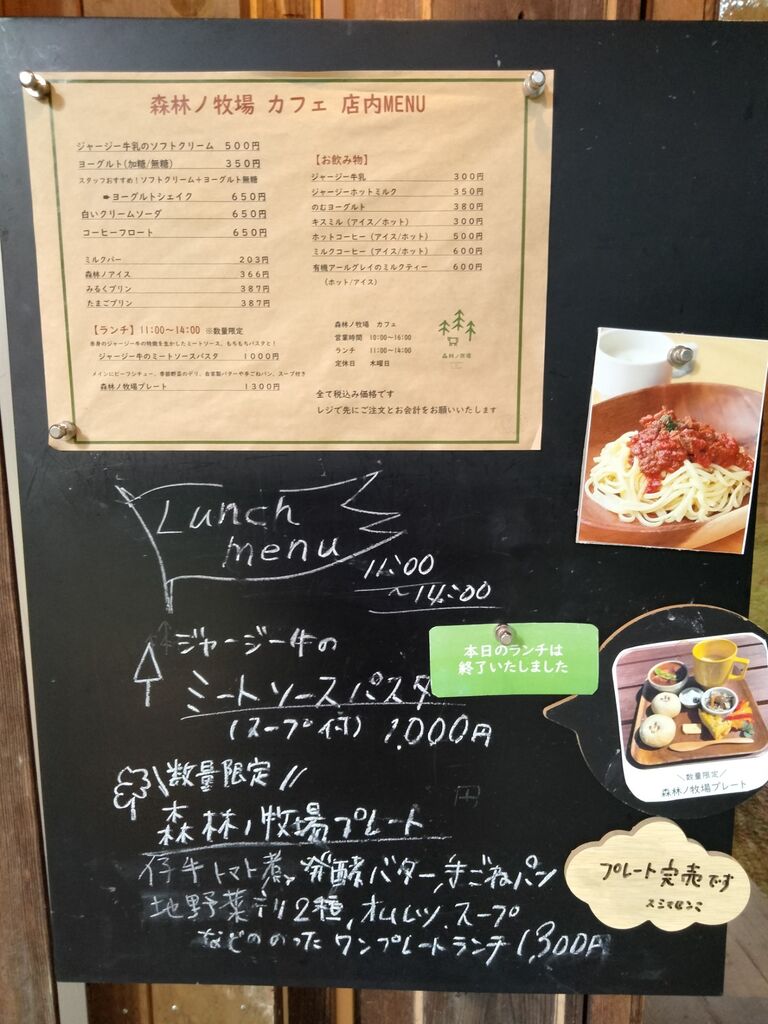 森林ノ牧場 カフェ 店内MENU
ジャージー牛乳のソフトクリーム 500円
ヨーグルト(加糖/無糖) 350円
スタッフおすすめ!ソフトクリーム+ヨーグルト無糖
ヨーグルトシェイク 650円
白いクリームソーダ 650円
コーヒーフロート 650円
ミルクバー 203円
森林ノアイス 366円
みるくプリン 387円
たまごプリン 387円
【ランチ】11:00~14:00 ※数量限定
赤身のジャージー牛の特徴を生かしたミートソース、もちもちパスタと!
ジャージー牛のミートソースパスタ 1000円
メインにビーフシチュー、季節野菜のデリ、自家製バターや手ごねパン、スープ付き
森林ノ牧場プレート 1300円
【お飲み物】
ジャージー牛乳 300円
ジャージーホットミルク 350円
のむヨーグルト 380円
キスミル(アイス/ホット) 300円
ホットコーヒー(アイス/ホット) 500円
ミルクコーヒー(アイス/ホット) 600円
有機アールグレイのミルクティー 600円
(ホット/アイス)
森林ノ牧場 カフェ
営業時間 10:00~16:00
ランチ 11:00~14:00
定休日 木曜日
森林ノ牧場
全て税込み価格です
レジで先にご注文とお会計をお願いいたします
Lunch
menu
11:00
~14:00
ジャージー牛の
ミートソースパスタ
(スープ付) 1,000円
本日のランチは
終了いたしました
\数量限定//
森林ノ牧場プレート
仔牛トマト煮、発酵バター、手ごねパン
地野菜デリ2種、オムレツ、スープ
などののった ワンプレートランチ 1,300円
\数量限定/
森林ノ牧場プレート
プレート完売です